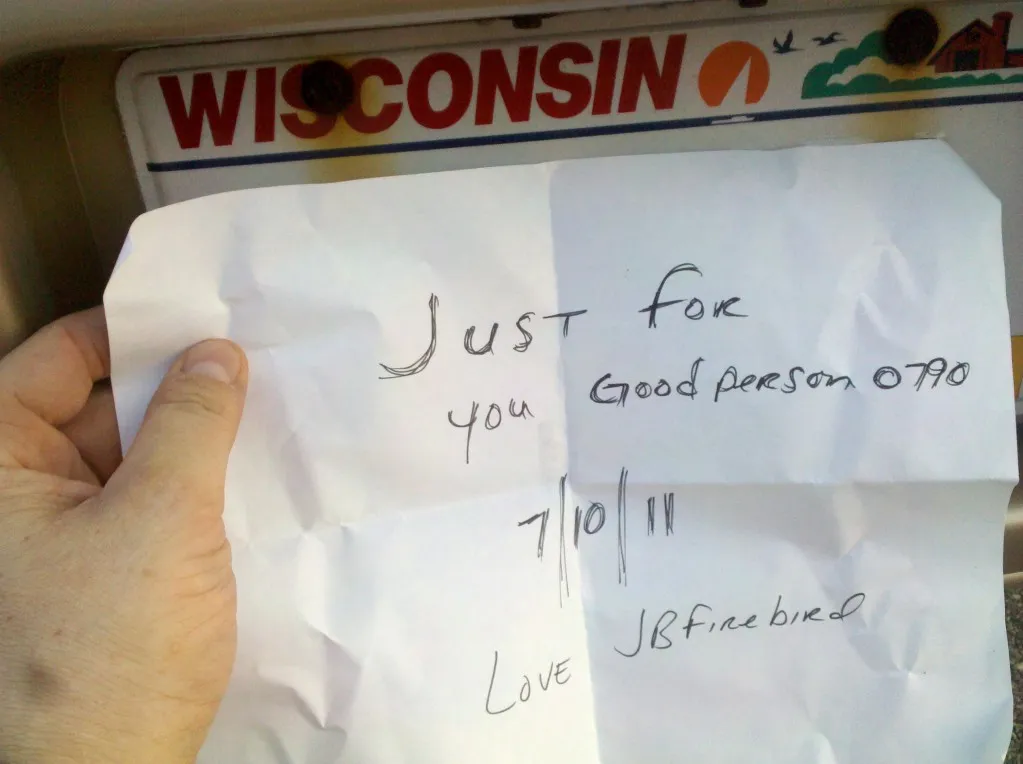 WISCONSIN
Just for
you Goodperson 0790
7/10/11
Love JBfirebird